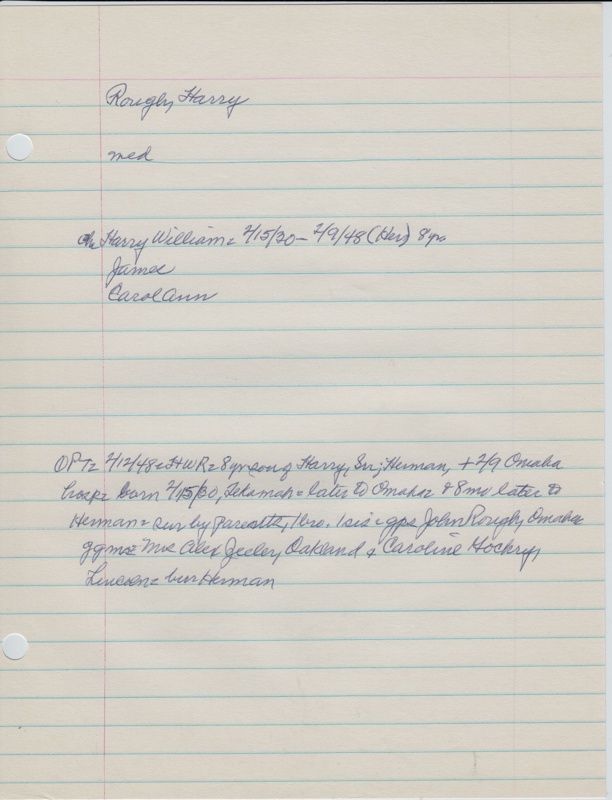 Rough, Harry
med
ch= Harry William= 2/15/30- 2/9/48 (Her) 8 yrs
James
Carol Ann
OPT= 2/12/48= HWR= 8 yr son of Harry, Sr; Herman, + 2/9 Omaha
hosp= born 2/15/30, Tekamah= later to Omaha & 8 mo later to
Herman= sur by parents, 1 bro. 1 sis= gps John Rough, Omaha
ggms= Mrs Alex Omaha Oakland & Caroline
= bur Herman